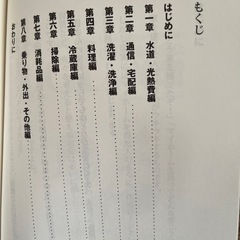 もくじ
はじめに
第一章 水道・光熱費編
第二章 通信・宅配編
第三章 洗濯・洗浄編
第四章 料理編
第五章 冷蔵庫編
第六章 掃除編
第七章 消耗品編
第八章 乗り物・外出・その他編
おわりに